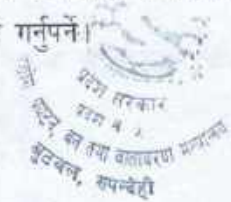 गर्नुपर्ने।
प्रदेश सरकार
पर्यटन, वन तथा वातावरण मन्त्रालय
बुटवल, रुपन्देही